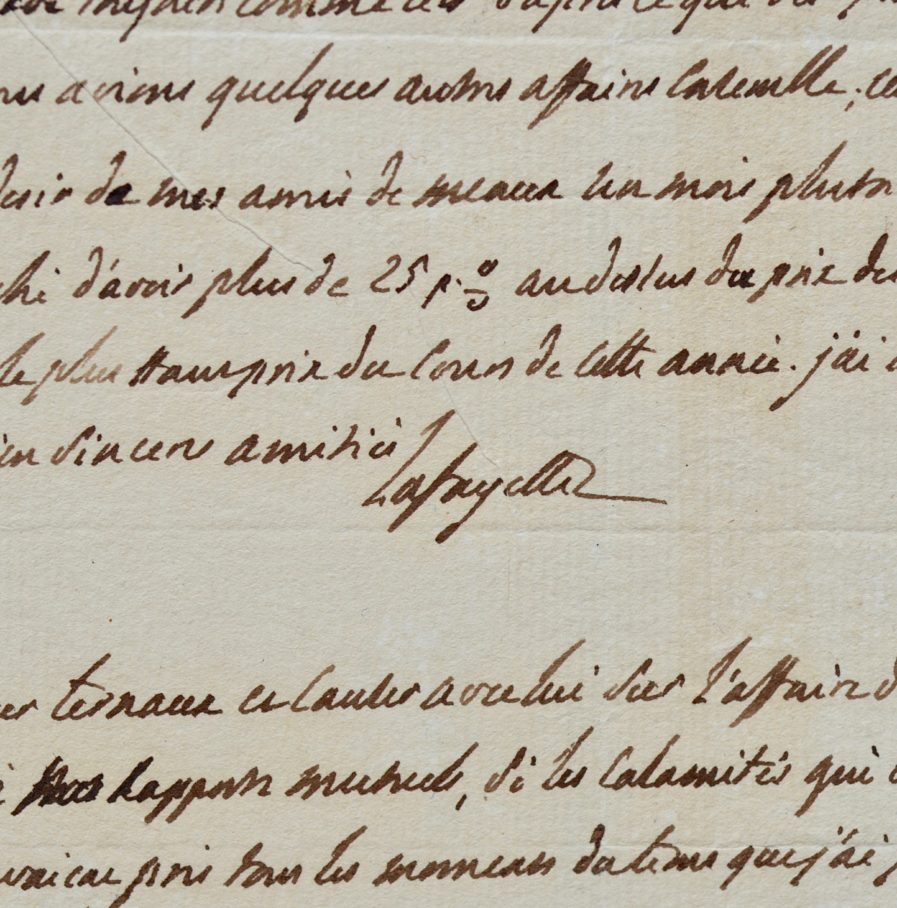 comme d'après ce que
avions quelques autres affaires ensemble, ce
desir de mes amis de meaux un mois plutot
d'avoir plus de 25 p.% au dessus du prix des
le plus haut prix du Cours de cette année. j'ai
sinceres amitiés
Lafayette
ternaux et causés avec lui sur l'affaire d
nos rapports mutuels, si les Calamités qui
pris tous les momens du tems que j'ai